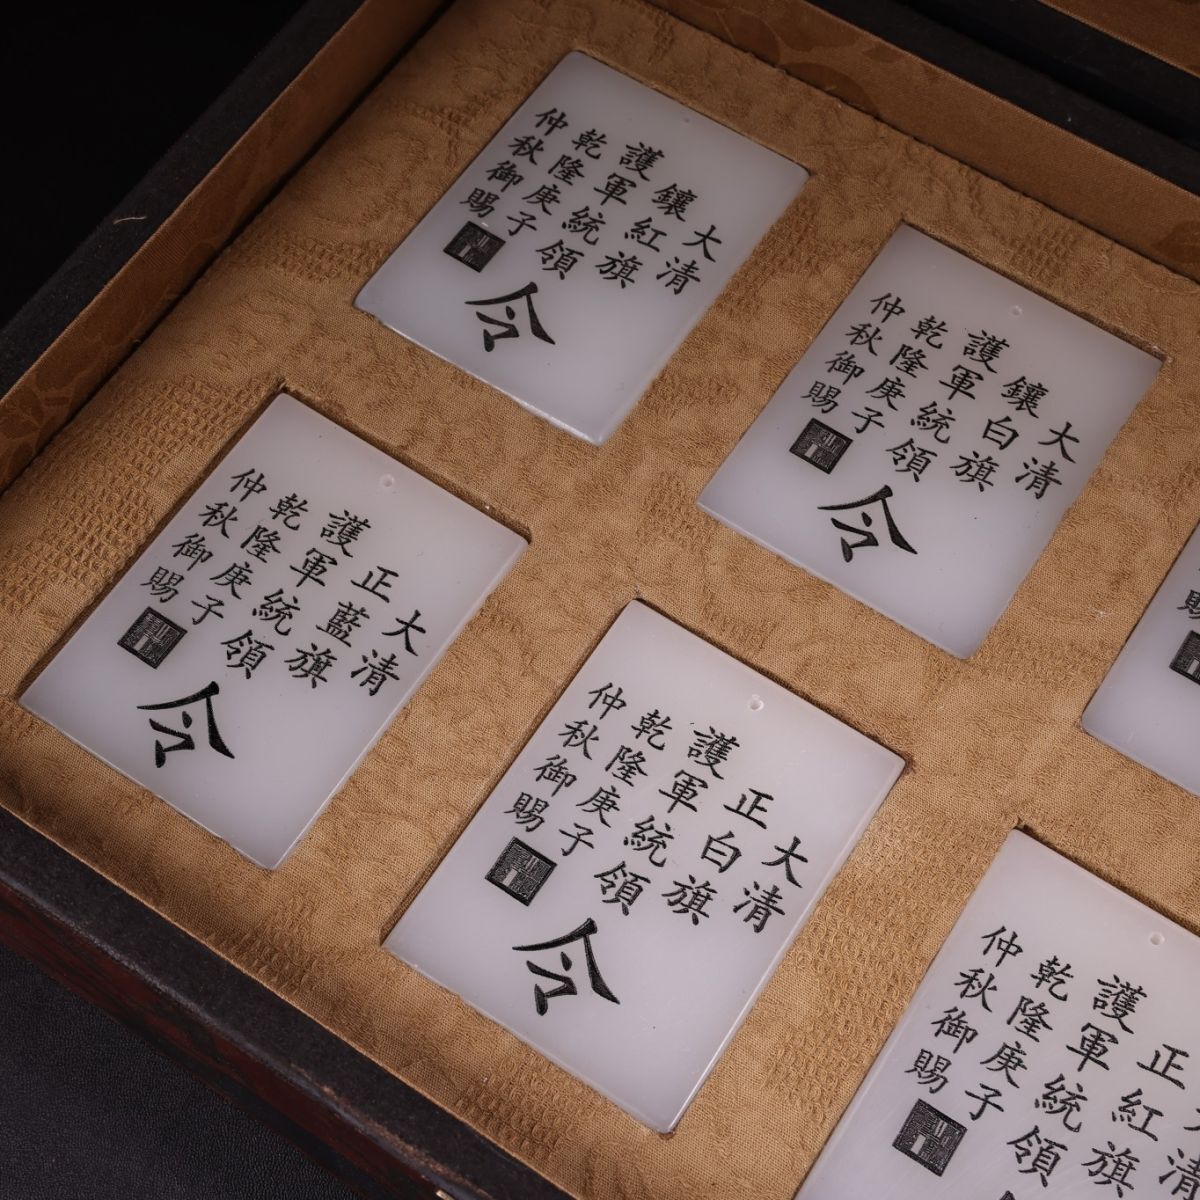 大清
鑲紅旗
護軍統領
令
乾隆庚子
仲秋御賜
大清
鑲白旗
護軍統領
令
乾隆庚子
仲秋御賜
大清
正藍旗
護軍統領
令
乾隆庚子
仲秋御賜
大清
正白旗
護軍統領
令
乾隆庚子
仲秋御賜
清
正紅旗
護軍統領
乾隆庚子
仲秋御賜
賜